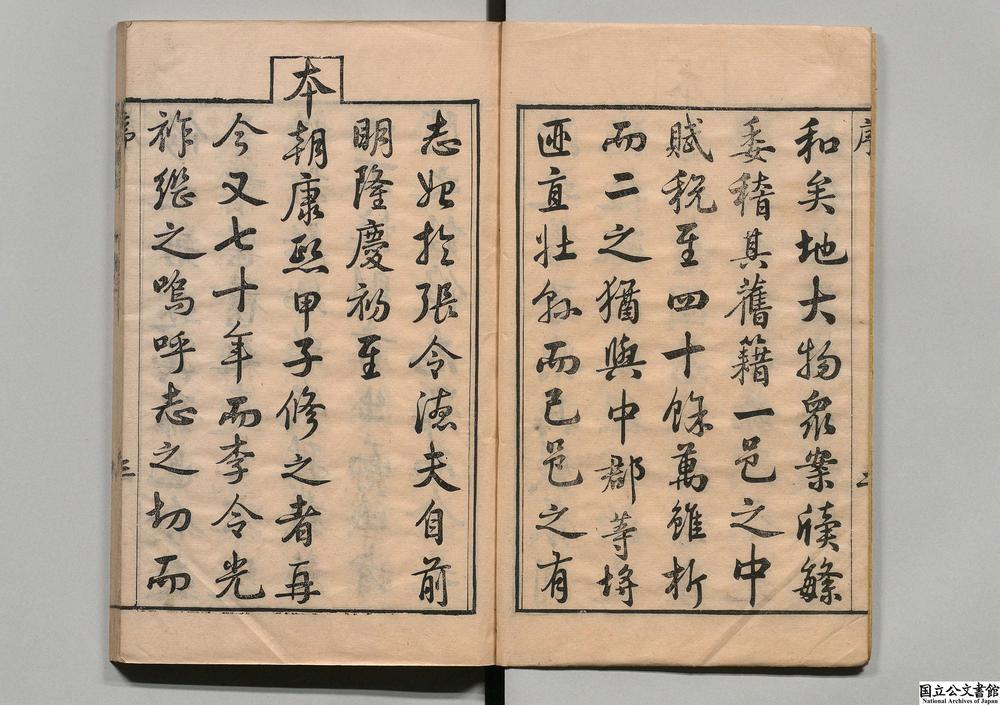 和矣地大物衆案牘繁
委稽其舊籍一邑之中
賦稅至四十餘萬雖析
而二之猶與中郡等埒
迺直壯縣而已邑之有
志始於張令德夫自前
明隆慶初至
本朝康熙甲子修之者再
今又七十年而李令光
祚繼之嗚呼志之切而
序
二
序
三
国立公文書館
National Archives of Japan